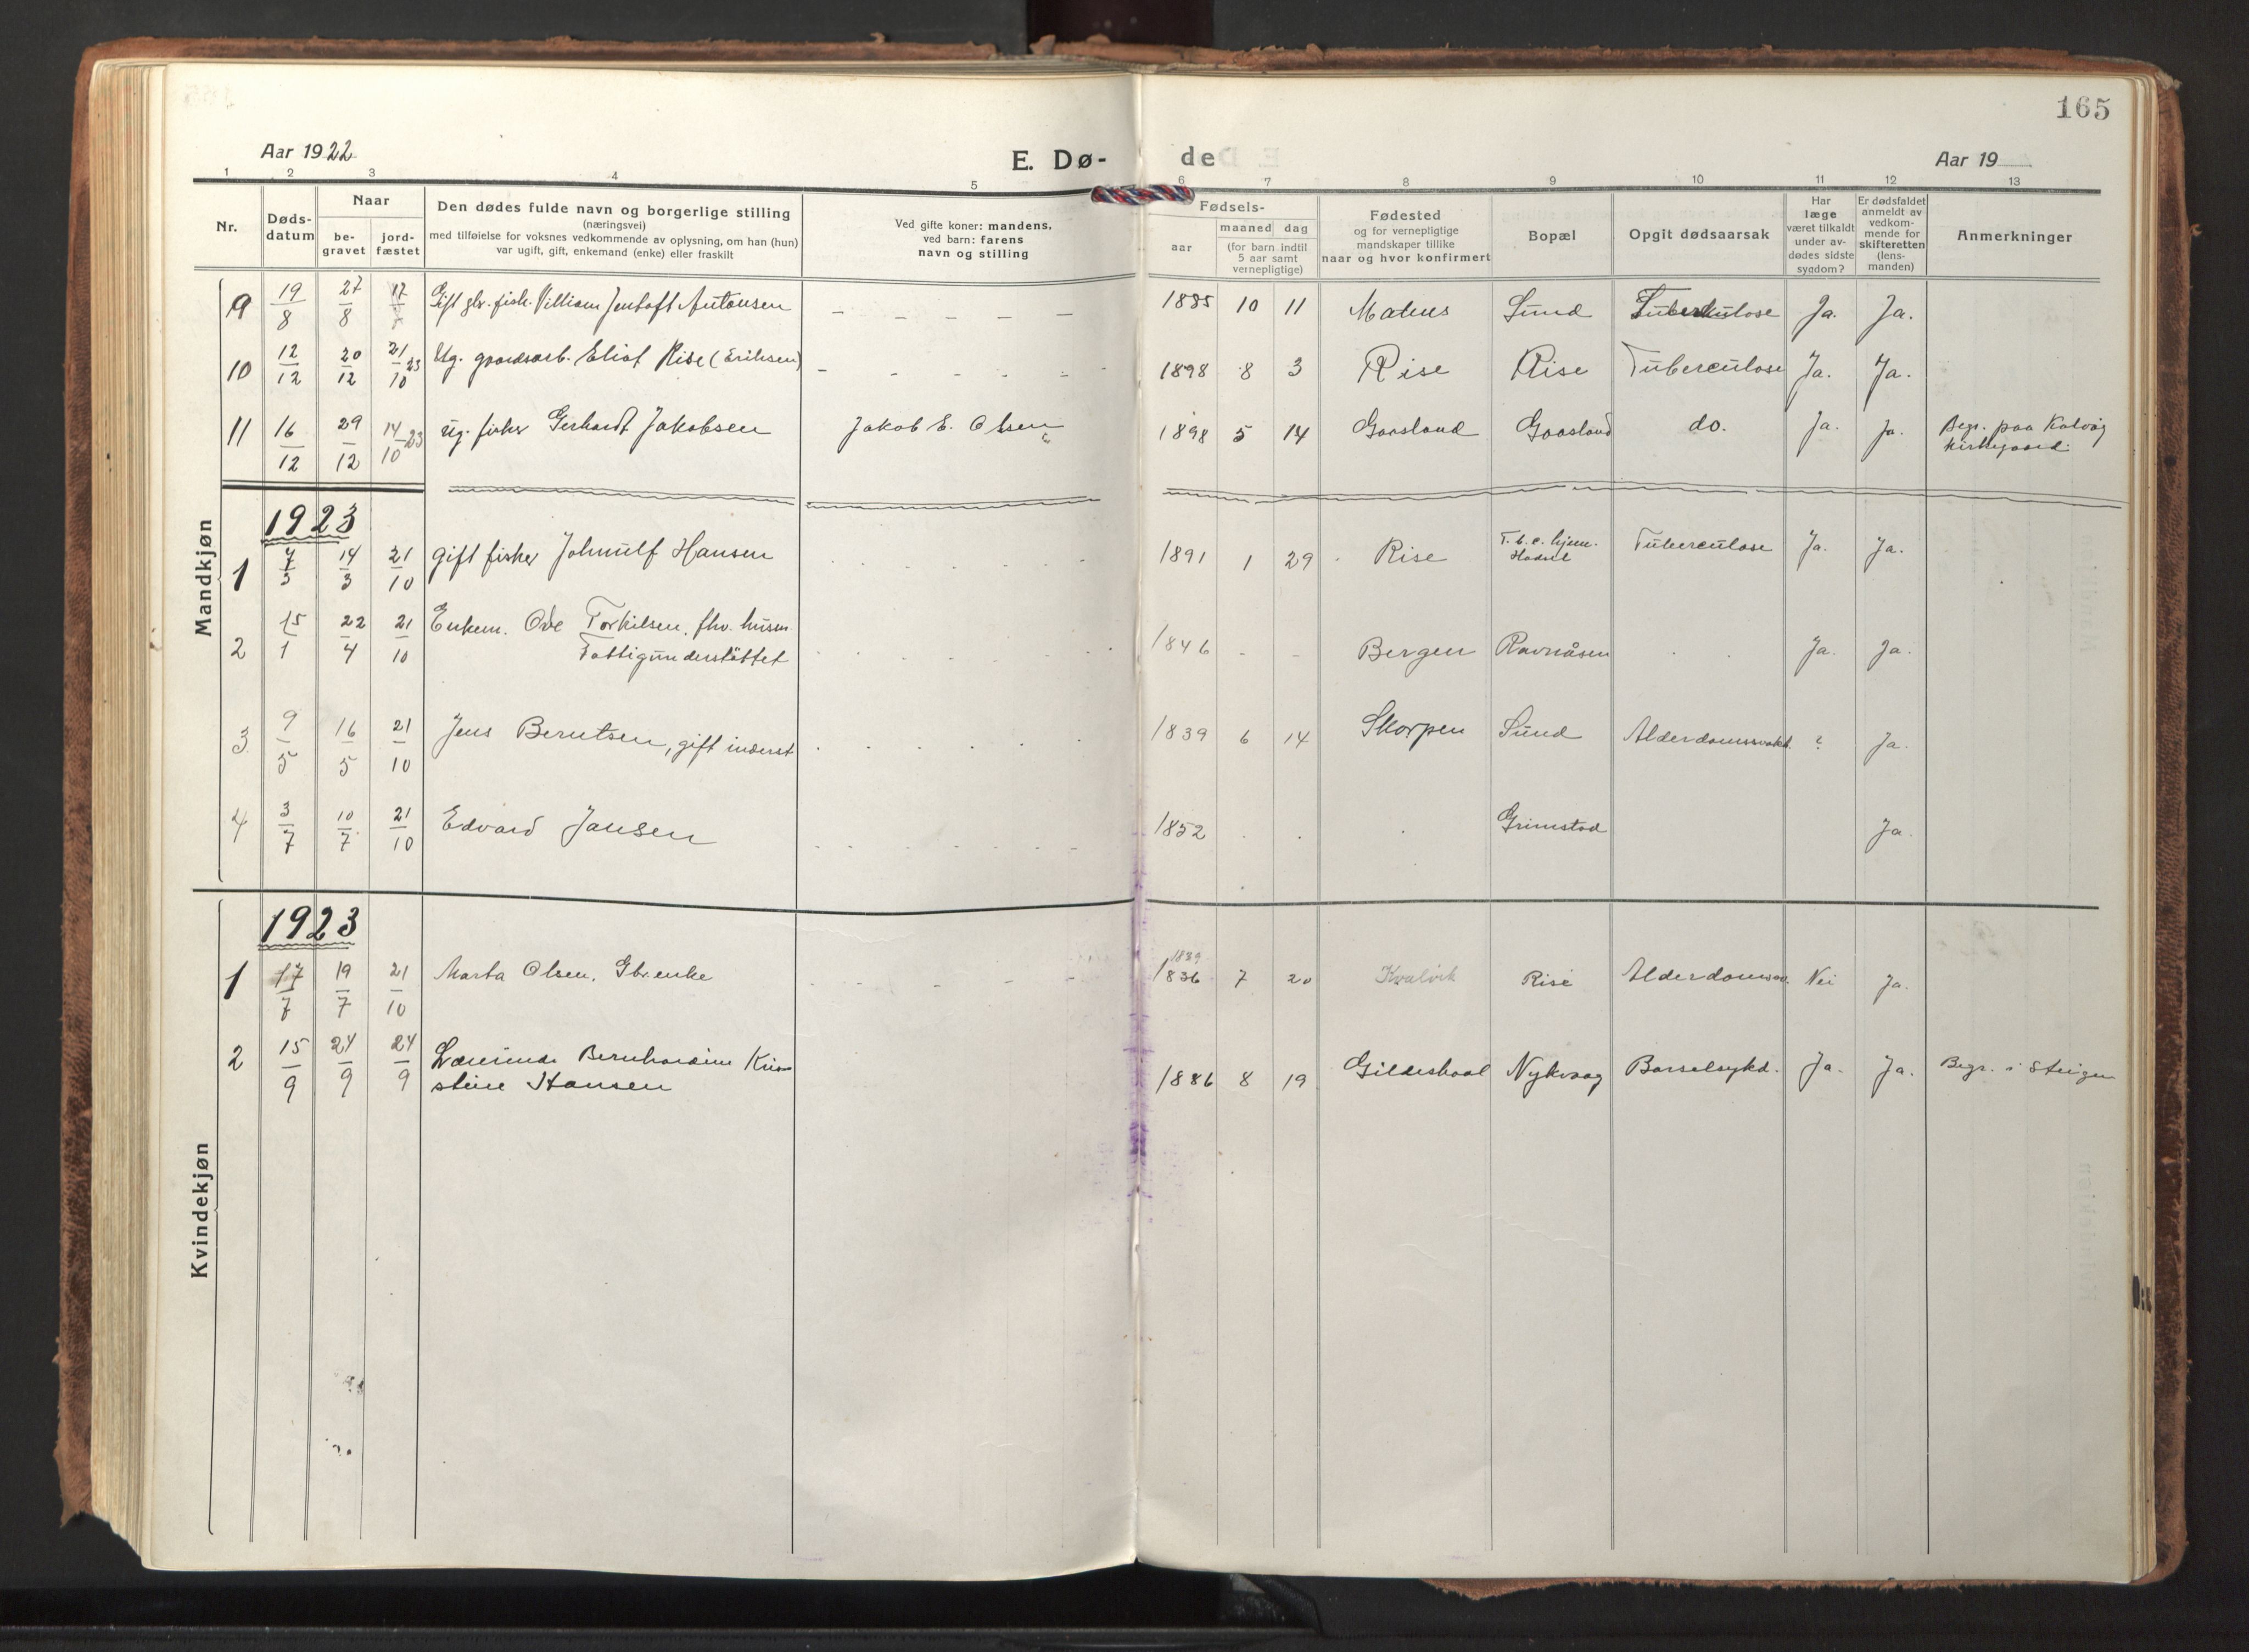 165
Aar 1922
E. Dø-
de
Aar 19
1 2 3 4 5 6 7 8 9 10 11 12 13
Nr.
Døds-
datum
Naar
be-
gravet
jord-
fæstet
Den dødes fulde navn og borgerlige stilling
(næringsvei)
med tilføielse for voksnes vedkommende av oplysning, om han (hun)
var ugift, gift, enkemand (enke) eller fraskilt
Ved gifte koner: mandens,
ved barn: farens
navn og stilling
Fødsels-
aar
maaned dag
(for barn indtil
5 aar samt
vernepligtige)
Fødested
og for vernepligtige
mandskaper tillike
naar og hvor konfirmert
Bopæl
Opgit dødsaarsak
Har
læge
været tilkaldt
under av-
dødes sidste
sygdom?
Er dødsfaldet
anmeldt av
vedkom-
mende for
skifteretten
(lens-
manden)
Anmerkninger
Mandkjøn
9 19/8 27/8 Gift gbr. fisk. Villiam Jentoft Antonsen - - - - - 1885 10 11 Sund Tuberkulose Ja. Ja.
10 12/12 20/12 21/10 23 Ug. gaardsarb. Eliot Rise (Eriksen) - - - - - 1898 8 3 Rise Rise Tuberculose Ja. Ja.
11 16/12 29/12 14/10-23 Ug. fisker Gerhardt Jakobsen Jakob E. Olsen 1898 5 14 Gaasland Gaasland do. Ja. Ja. Begr. paa Kalvåg
kirkegaard.
1923
1 7/3 14/3 21/10 gift fisker Johnulf Hansen 1891 1 29 Rise T.b.c. hjem.
Hadsel Tuberculose Ja. Ja.
2 15/1 22/4 21/10 Enkem. Ove Torkilsen, fhv. husm.
Fattigunderstöttet 1846 - - Bergen Ravnåsen Ja. Ja.
3 9/5 16/5 21/10 Jens Berntsen, gift inderst 1839 6 14 Skorpen Sund Alderdomssvakh. ? Ja.
4 3/7 10/7 21/10 Edvard Jansen 1852 Grimstad Ja.
Kvindekjøn
1923
1 17/7 19/7 21/10 Marta Olsen, Gbr.enke 1839
1836 7 20 Kvalvik Rise Alderdomssv. Nei Ja.
2 15/9 24/9 24/9 Bernhardine Kri-
stine Hansen 1886 8 19 Gildeskaal Nykvaag Barselsykd. Ja. Ja. Begr. i Steigen